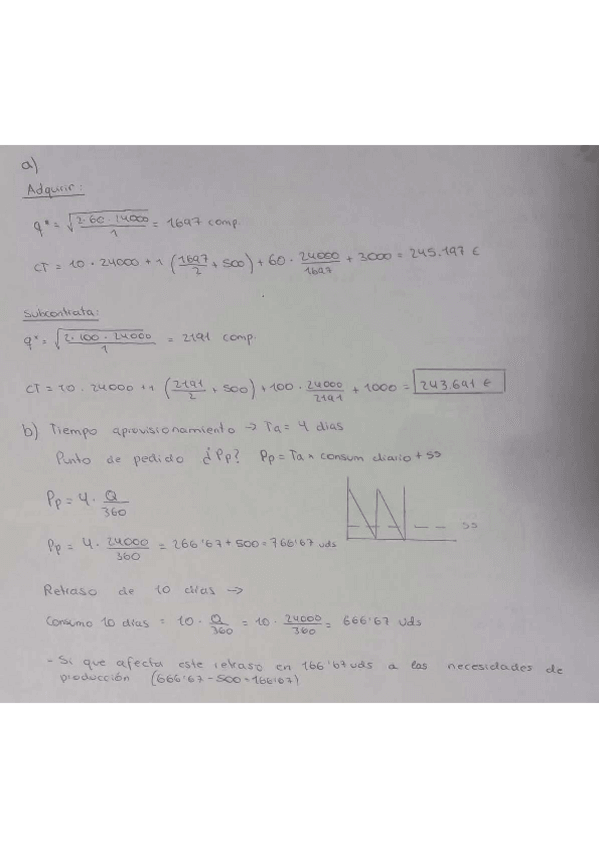 a)
Adquirir:
q* = √(2·60·24000 / 1) = 1697 comp.
CT = 10 · 24000 + 1 (1697/2 + 500) + 60 · 24000/1697 + 3000 = 245.197 €
Subcontrata:
q* = √(2·100·24000 / 1) = 2191 comp.
CT = 10 · 24000 + 1 (2191/2 + 500) + 100 · 24000/2191 + 1000 = 243.691 €
b) Tiempo aprovisionamiento → Ta = 4 días
Punto de pedido ¿Pp? Pp = Ta × consum diario + SS
Pp = 4 · Q/360
Pp = 4 · 24000/360 = 266'67 + 500 = 766'67 uds
SS
Retraso de 10 días →
Consumo 10 días = 10 · Q/360 = 10 · 24000/360 = 666'67 uds
- Si que afecta este retraso en 166'67 uds a las necesidades de
producción (666'67 - 500 = 166'67)